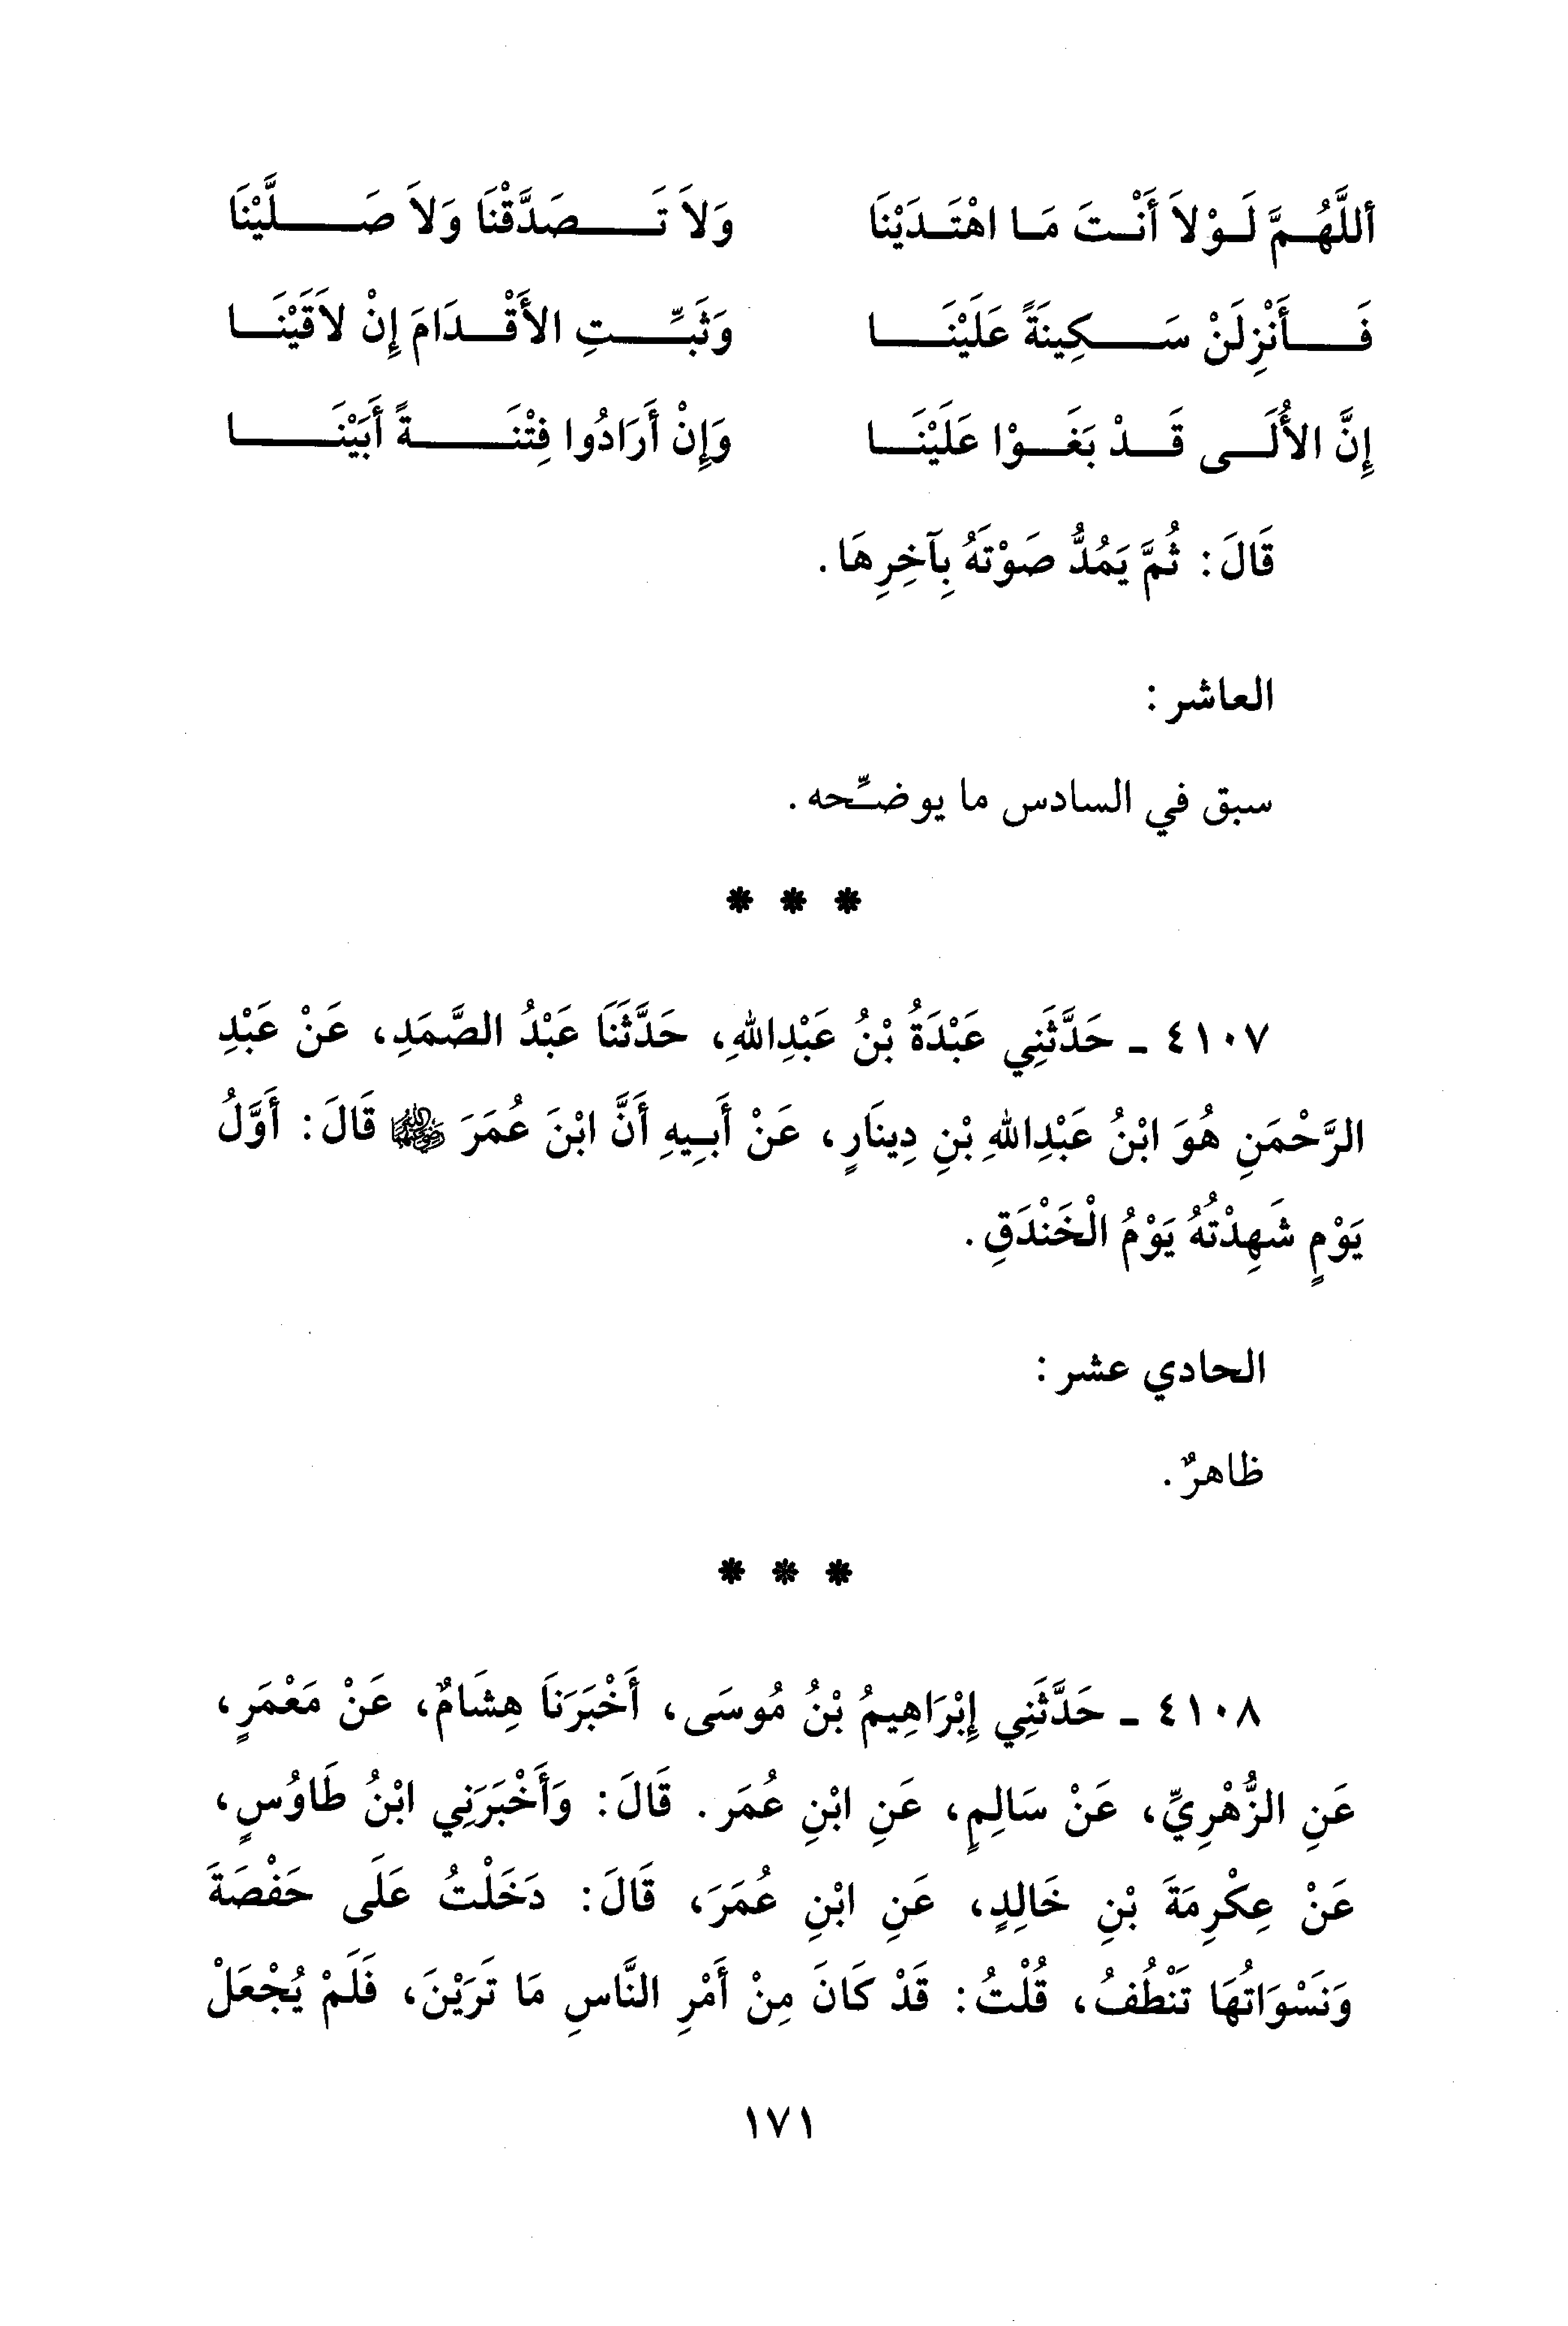 أللَّهُمَّ لَوْلاَ أَنْتَ مَا اهْتَدَيْنَا وَلاَ تَصَدَّقْنَا وَلاَ صَلَّيْنَا
فَأَنْزِلَنْ سَكِينَةً عَلَيْنَا وَثَبِّتِ الأَقْدَامَ إِنْ لاَقَيْنَا
إِنَّ الأُلَى قَدْ بَغَوْا عَلَيْنَا وَإِنْ أَرَادُوا فِتْنَةً أَبَيْنَا
قَالَ: ثُمَّ يَمُدُّ صَوْتَهُ بِآخِرِهَا.
العاشر:
سبق في السادس ما يوضِّحه.
* * *
٤١٠٧ - حَدَّثَنِي عَبْدَةُ بْنُ عَبْدِاللهِ، حَدَّثَنَا عَبْدُ الصَّمَدِ، عَنْ عَبْدِ
الرَّحْمَنِ هُوَ ابْنُ عَبْدِاللهِ بْنِ دِينَارٍ، عَنْ أَبِيهِ أَنَّ ابْنَ عُمَرَ ﵁ قَالَ: أَوَّلُ
يَوْمٍ شَهِدْتُهُ يَوْمُ الْخَنْدَقِ.
الحادي عشر:
ظاهرٌ.
* * *
٤١٠٨ - حَدَّثَنِي إِبْرَاهِيمُ بْنُ مُوسَى، أَخْبَرَنَا هِشَامٌ، عَنْ مَعْمَرٍ،
عَنِ الزُّهْرِيِّ، عَنْ سَالِمٍ، عَنِ ابْنِ عُمَر. قَالَ: وَأَخْبَرَنِي ابْنُ طَاوُسٍ،
عَنْ عِكْرِمَةَ بْنِ خَالِدٍ، عَنِ ابْنِ عُمَرَ، قَالَ: دَخَلْتُ عَلَى حَفْصَةَ
وَنَسْوَاتُهَا تَنْطُفُ، قُلْتُ: قَدْ كَانَ مِنْ أَمْرِ النَّاسِ مَا تَرَيْنَ، فَلَمْ يُجْعَلْ
١٧١